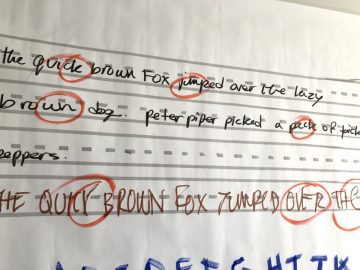 the quick brown Fox jumped over the lazy
brown dog. peter piper picked a pack of pick
peppers.
HE QUICK BROWN FOX JUMPED OVER THE
A B C D E F G H I J K